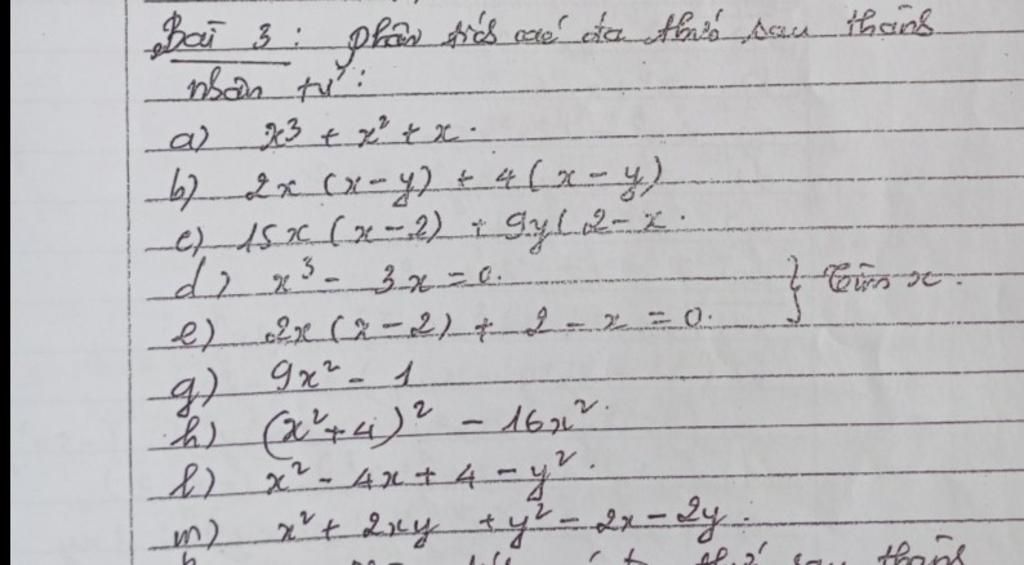 Bài 3 : phân tích các đa thức sau thành
nhân tử :
a) x³ + x² + x.
b) 2x (x - y) + 4 ( x - y )
c) 15x ( x - 2) + 9y ( 2 - x.
d) x³ - 3x = 0. } tìm x.
e) 2x ( x - 2) + 2 - x = 0.
g) 9x² - 1
h) (x² + 4)² - 16x².
l) x² - 4x + 4 - y².
m) x² + 2xy + y² - 2x - 2y.
sau thành